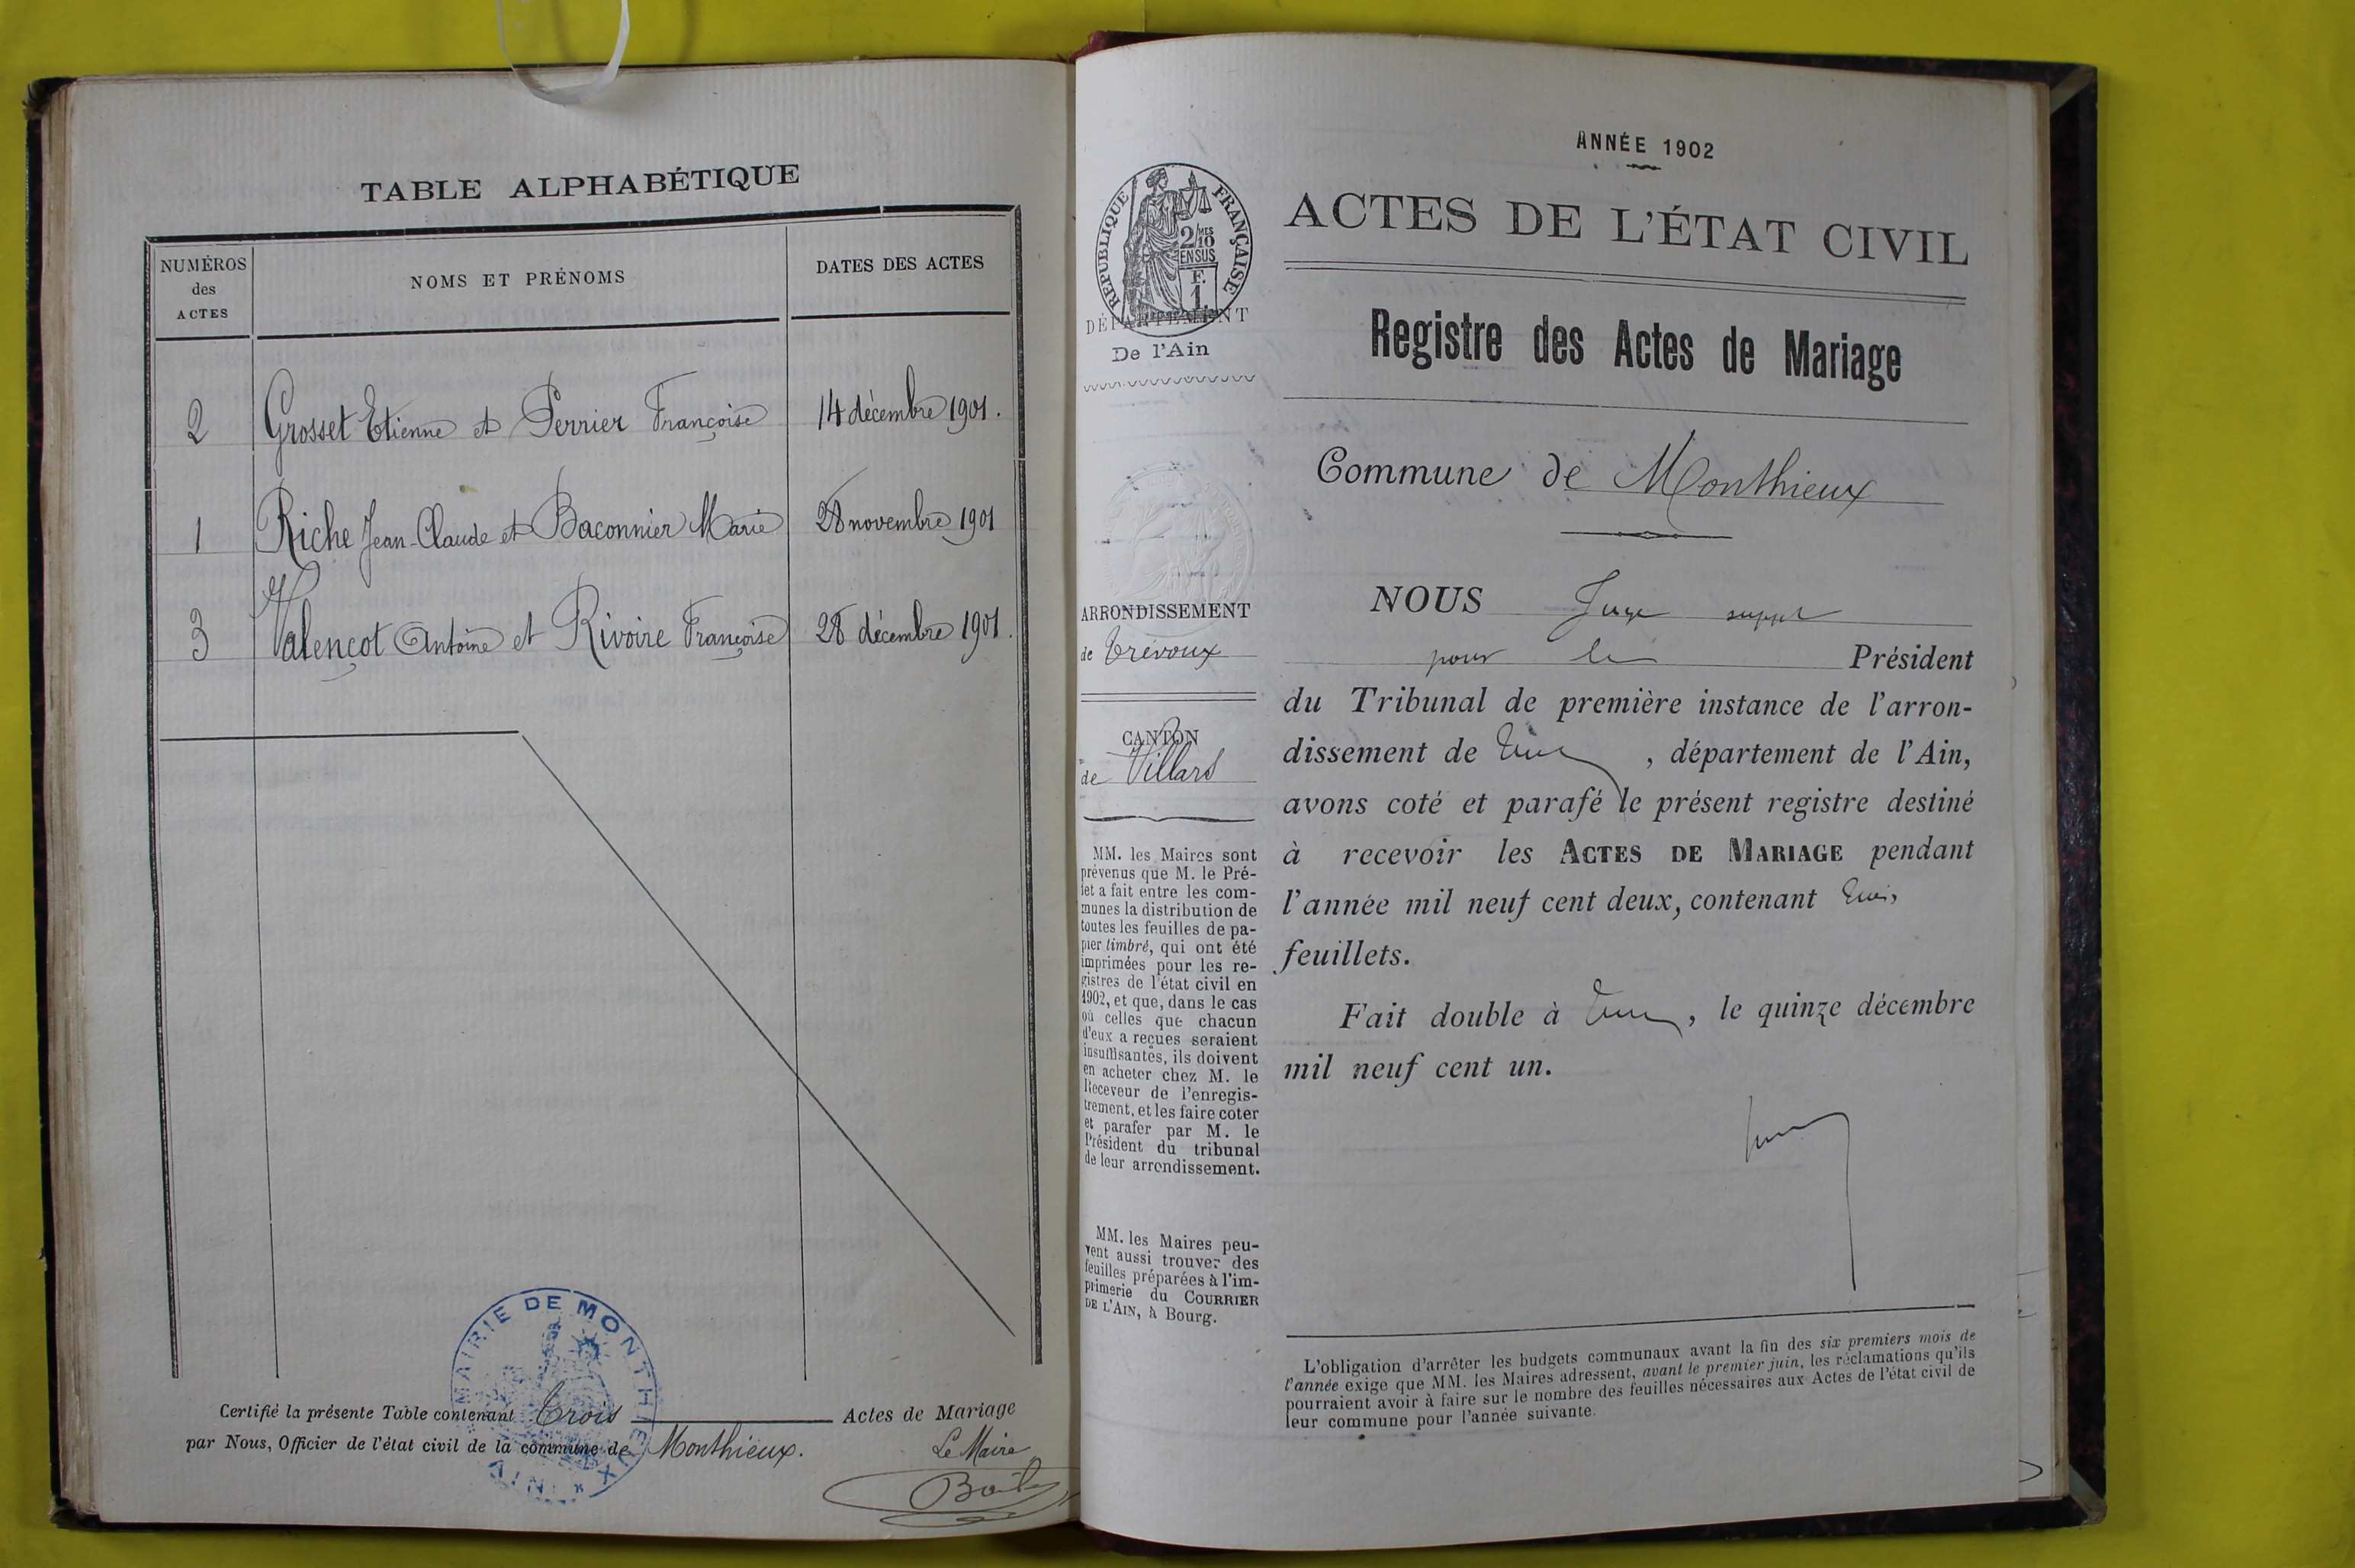 TABLE ALPHABÉTIQUE
NUMÉROS
des
ACTES
NOMS ET PRÉNOMS
DATES DES ACTES
2 Grosset Etienne et Perrier Françoise 14 décembre 1901.
1 Riche Jean-Claude et Baconnier Marie 28 novembre 1901
3 Valençot Antoine et Rivoire Françoise 28 décembre 1901.
MAIRIE DE MONTHIEUX
* AIN *
Certifié la présente Table contenant Trois Actes de Mariage
par Nous, Officier de l'état civil de la commune de Monthieux.
Le Maire
RÉPUBLIQUE FRANÇAISE
2/10 MES
EN SUS
F.
1
DÉPARTEMENT
De l'Ain
ARRONDISSEMENT
de Trévoux
CANTON
de Villars
MM. les Maires sont
prévenus que M. le Pré-
fet a fait entre les com-
munes la distribution de
toutes les feuilles de pa-
pier timbré, qui ont été
imprimées pour les re-
gistres de l'état civil en
1902, et que, dans le cas
où celles que chacun
d'eux a reçues seraient
insuffisantes, ils doivent
en acheter chez M. le
Receveur de l'enregis-
trement, et les faire coter
et parafer par M. le
Président du tribunal
de leur arrondissement.
MM. les Maires peu-
vent aussi trouver des
feuilles préparées à l'im-
primerie du COURRIER
DE L'AIN, à Bourg.
ANNÉE 1902
ACTES DE L'ÉTAT CIVIL
Registre des Actes de Mariage
Commune de Monthieux
NOUS Juge suppt
pour le Président
du Tribunal de première instance de l'arron-
dissement de , département de l'Ain,
avons coté et parafé le présent registre destiné
à recevoir les ACTES DE MARIAGE pendant
l'année mil neuf cent deux, contenant trois
feuillets.
Fait double à , le quinze décembre
mil neuf cent un.
L'obligation d'arrêter les budgets communaux avant la fin des six premiers mois de
l'année exige que MM. les Maires adressent, avant le premier juin, les réclamations qu'ils
pourraient avoir à faire sur le nombre des feuilles nécessaires aux Actes de l'état civil de
leur commune pour l'année suivante.